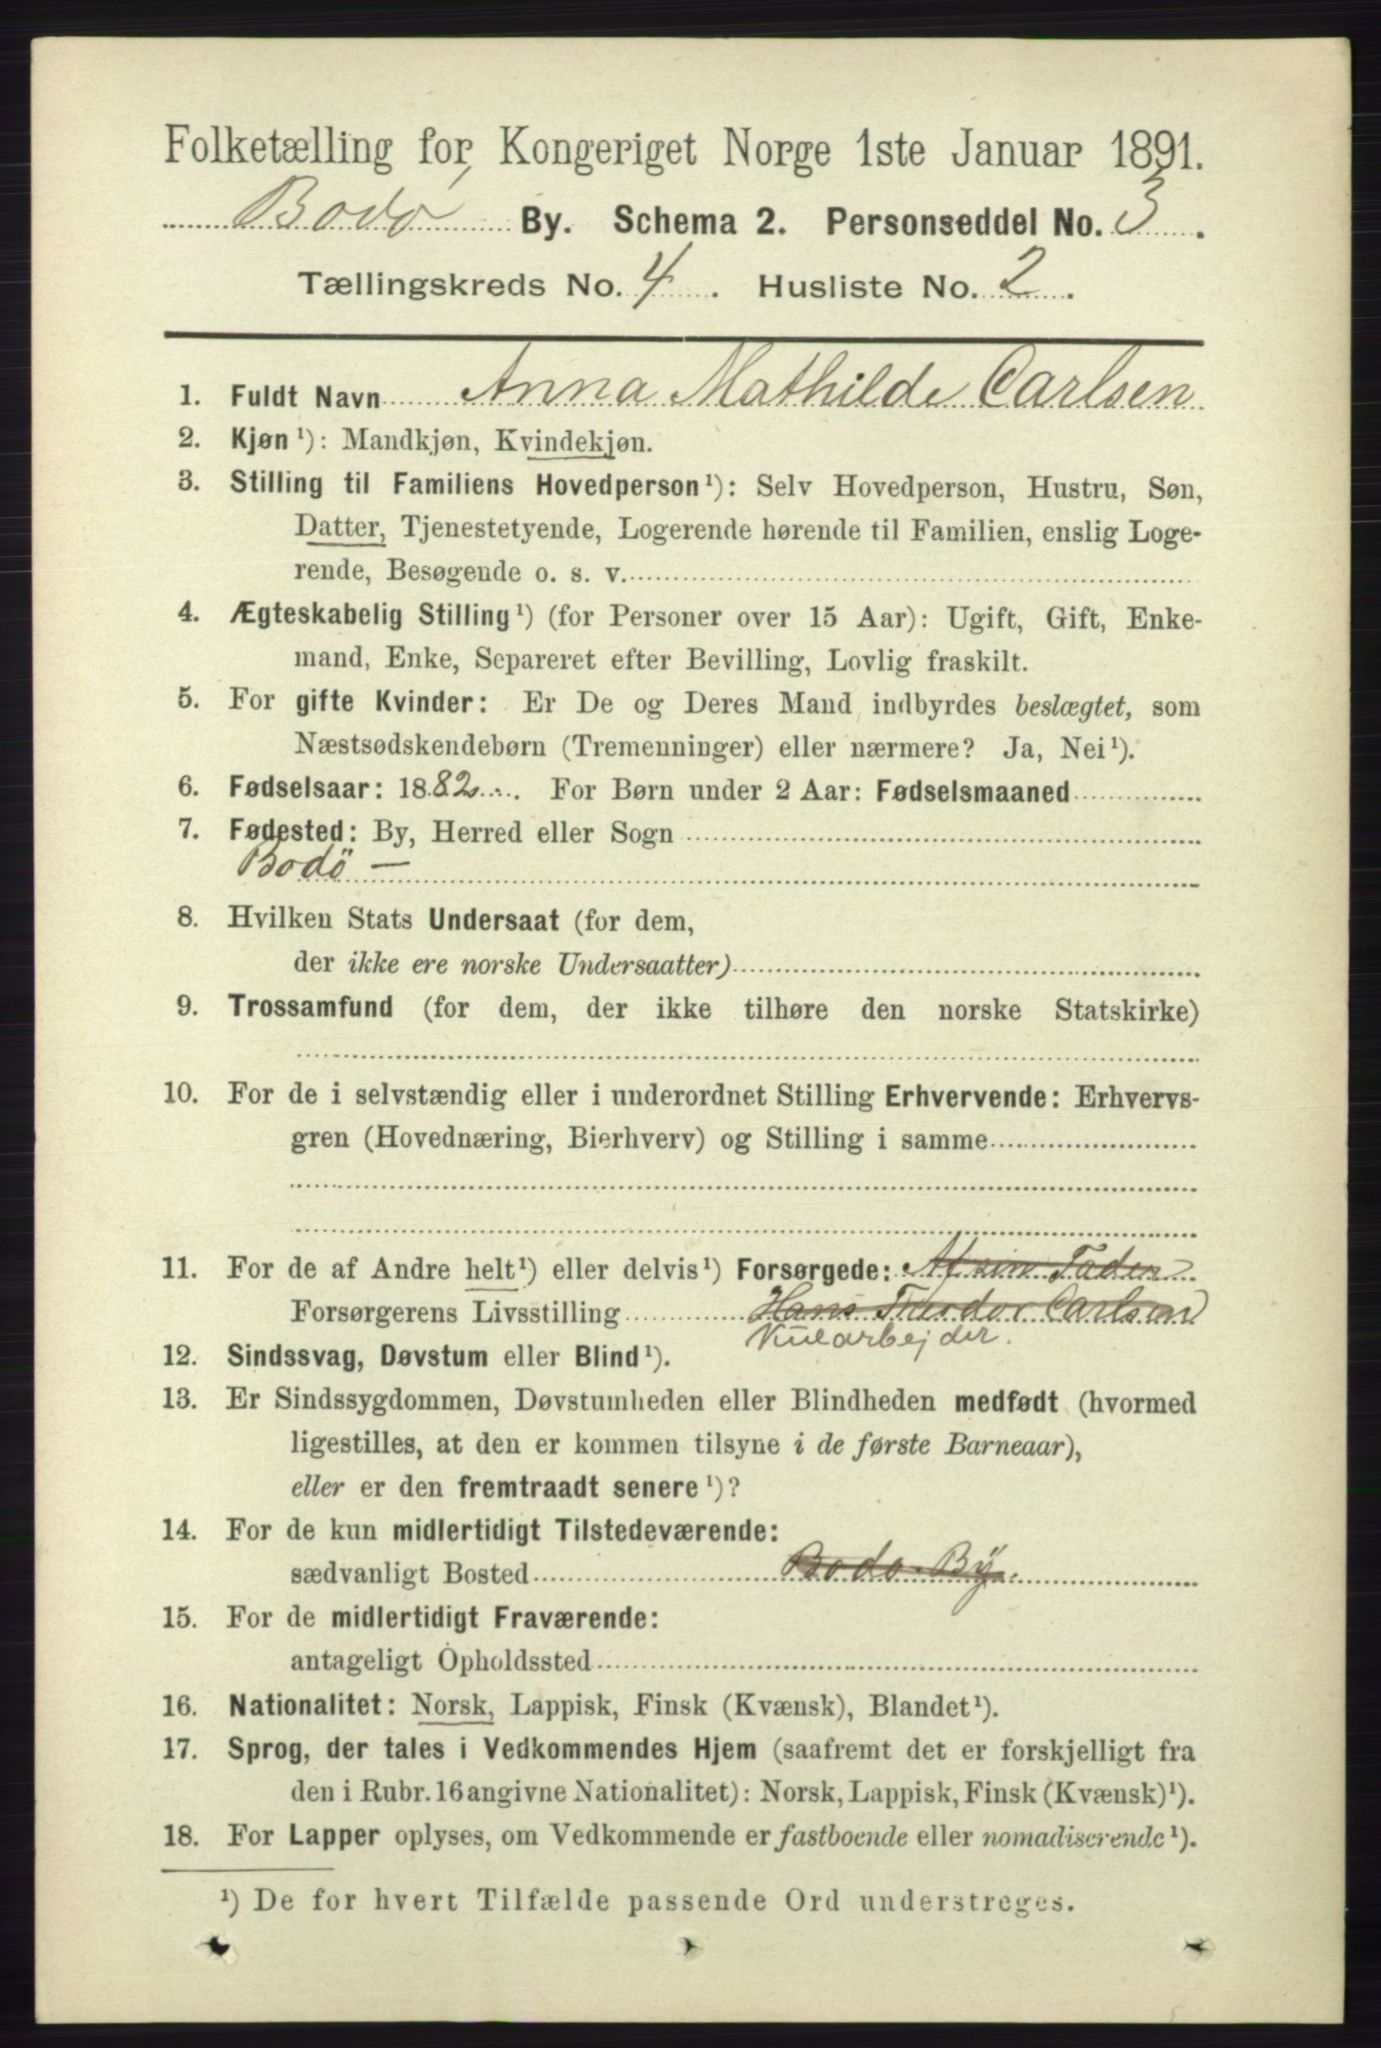 Folketælling for Kongeriget Norge 1ste Januar 1891.
Bodø By. Schema 2. Personseddel No. 3.
Tællingskreds No. 4. Husliste No. 2.
1. Fuldt Navn Anna Mathilde Carlsen
2. Kjøn ¹): Mandkjøn, Kvindekjøn.
3. Stilling til Familiens Hovedperson ¹): Selv Hovedperson, Hustru, Søn,
Datter, Tjenestetyende, Logerende hørende til Familien, enslig Loge-
rende, Besøgende o. s. v.
4. Ægteskabelig Stilling ¹) (for Personer over 15 Aar): Ugift, Gift, Enke-
mand, Enke, Separeret efter Bevilling, Lovlig fraskilt.
5. For gifte Kvinder: Er De og Deres Mand indbyrdes beslægtet, som
Næstsødskendebørn (Tremenninger) eller nærmere? Ja, Nei ¹).
6. Fødselsaar: 1882. For Børn under 2 Aar: Fødselsmaaned
7. Fødested: By, Herred eller Sogn
Bodö —
8. Hvilken Stats Undersaat (for dem,
der ikke ere norske Undersaatter)
9. Trossamfund (for dem, der ikke tilhøre den norske Statskirke)
10. For de i selvstændig eller i underordnet Stilling Erhvervende: Erhvervs-
gren (Hovednæring, Bierhverv) og Stilling i samme
11. For de af Andre helt ¹) eller delvis ¹) Forsørgede: Af sin Fader
Forsørgerens Livsstilling Hans Theodor Carlsen
Kularbejder.
12. Sindssvag, Døvstum eller Blind ¹).
13. Er Sindssygdommen, Døvstumheden eller Blindheden medfødt (hvormed
ligestilles, at den er kommen tilsyne i de første Barneaar),
eller er den fremtraadt senere ¹)?
14. For de kun midlertidigt Tilstedeværende:
sædvanligt Bosted Bodo By.
15. For de midlertidigt Fraværende:
antageligt Opholdssted
16. Nationalitet: Norsk, Lappisk, Finsk (Kvænsk), Blandet ¹).
17. Sprog, der tales i Vedkommendes Hjem (saafremt det er forskjelligt fra
den i Rubr. 16 angivne Nationalitet): Norsk, Lappisk, Finsk (Kvænsk) ¹).
18. For Lapper oplyses, om Vedkommende er fastboende eller nomadiserende ¹).
¹) De for hvert Tilfælde passende Ord understreges.